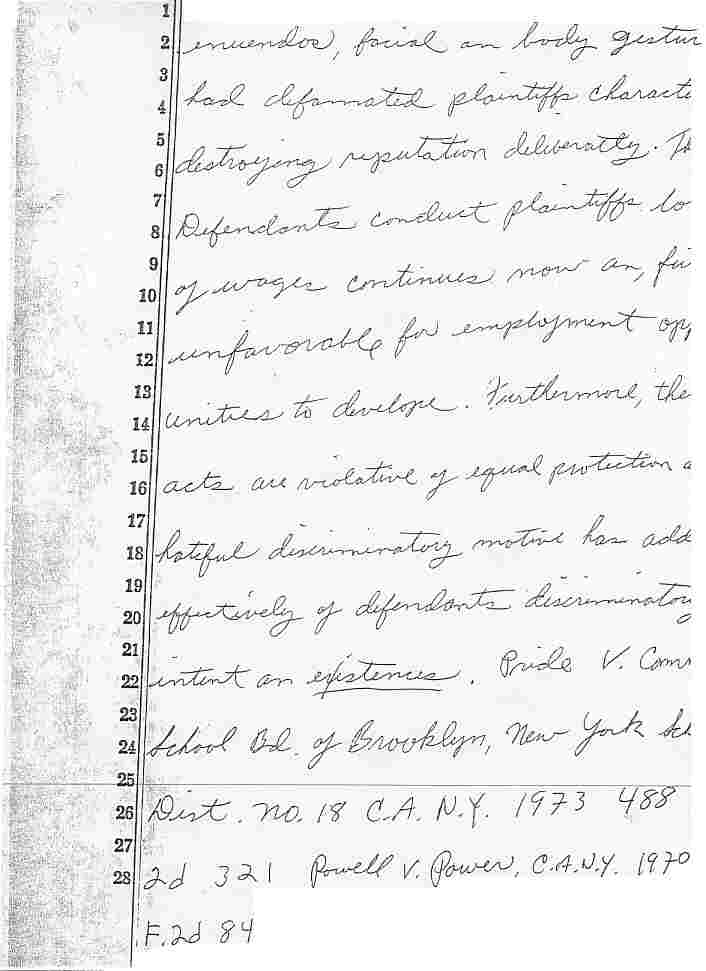 1
2 enuendos, facial an body gestur
3
4 had defamated plaintiffs characte
5
6 destroying reputation deliveratly. Th
7
8 Defendants conduct plaintiffs lo
9
10 of wages continues now an, fu
11
12 unfavorable for employment opp
13
14 unities to develope. Furthermore, the
15
16 acts are violative of equal protection a
17
18 hateful discriminatory motive has add
19
20 effectively of defendants discriminatory
21
22 intent an existences. Pride V. Comm
23
24 School Bd. of Brooklyn, New York Sch
25
26 Dist. no. 18 C.A. N.Y. 1973 488
27
28 2d 321 Powell V. Power, C.A.N.Y. 1970
F.2d 84